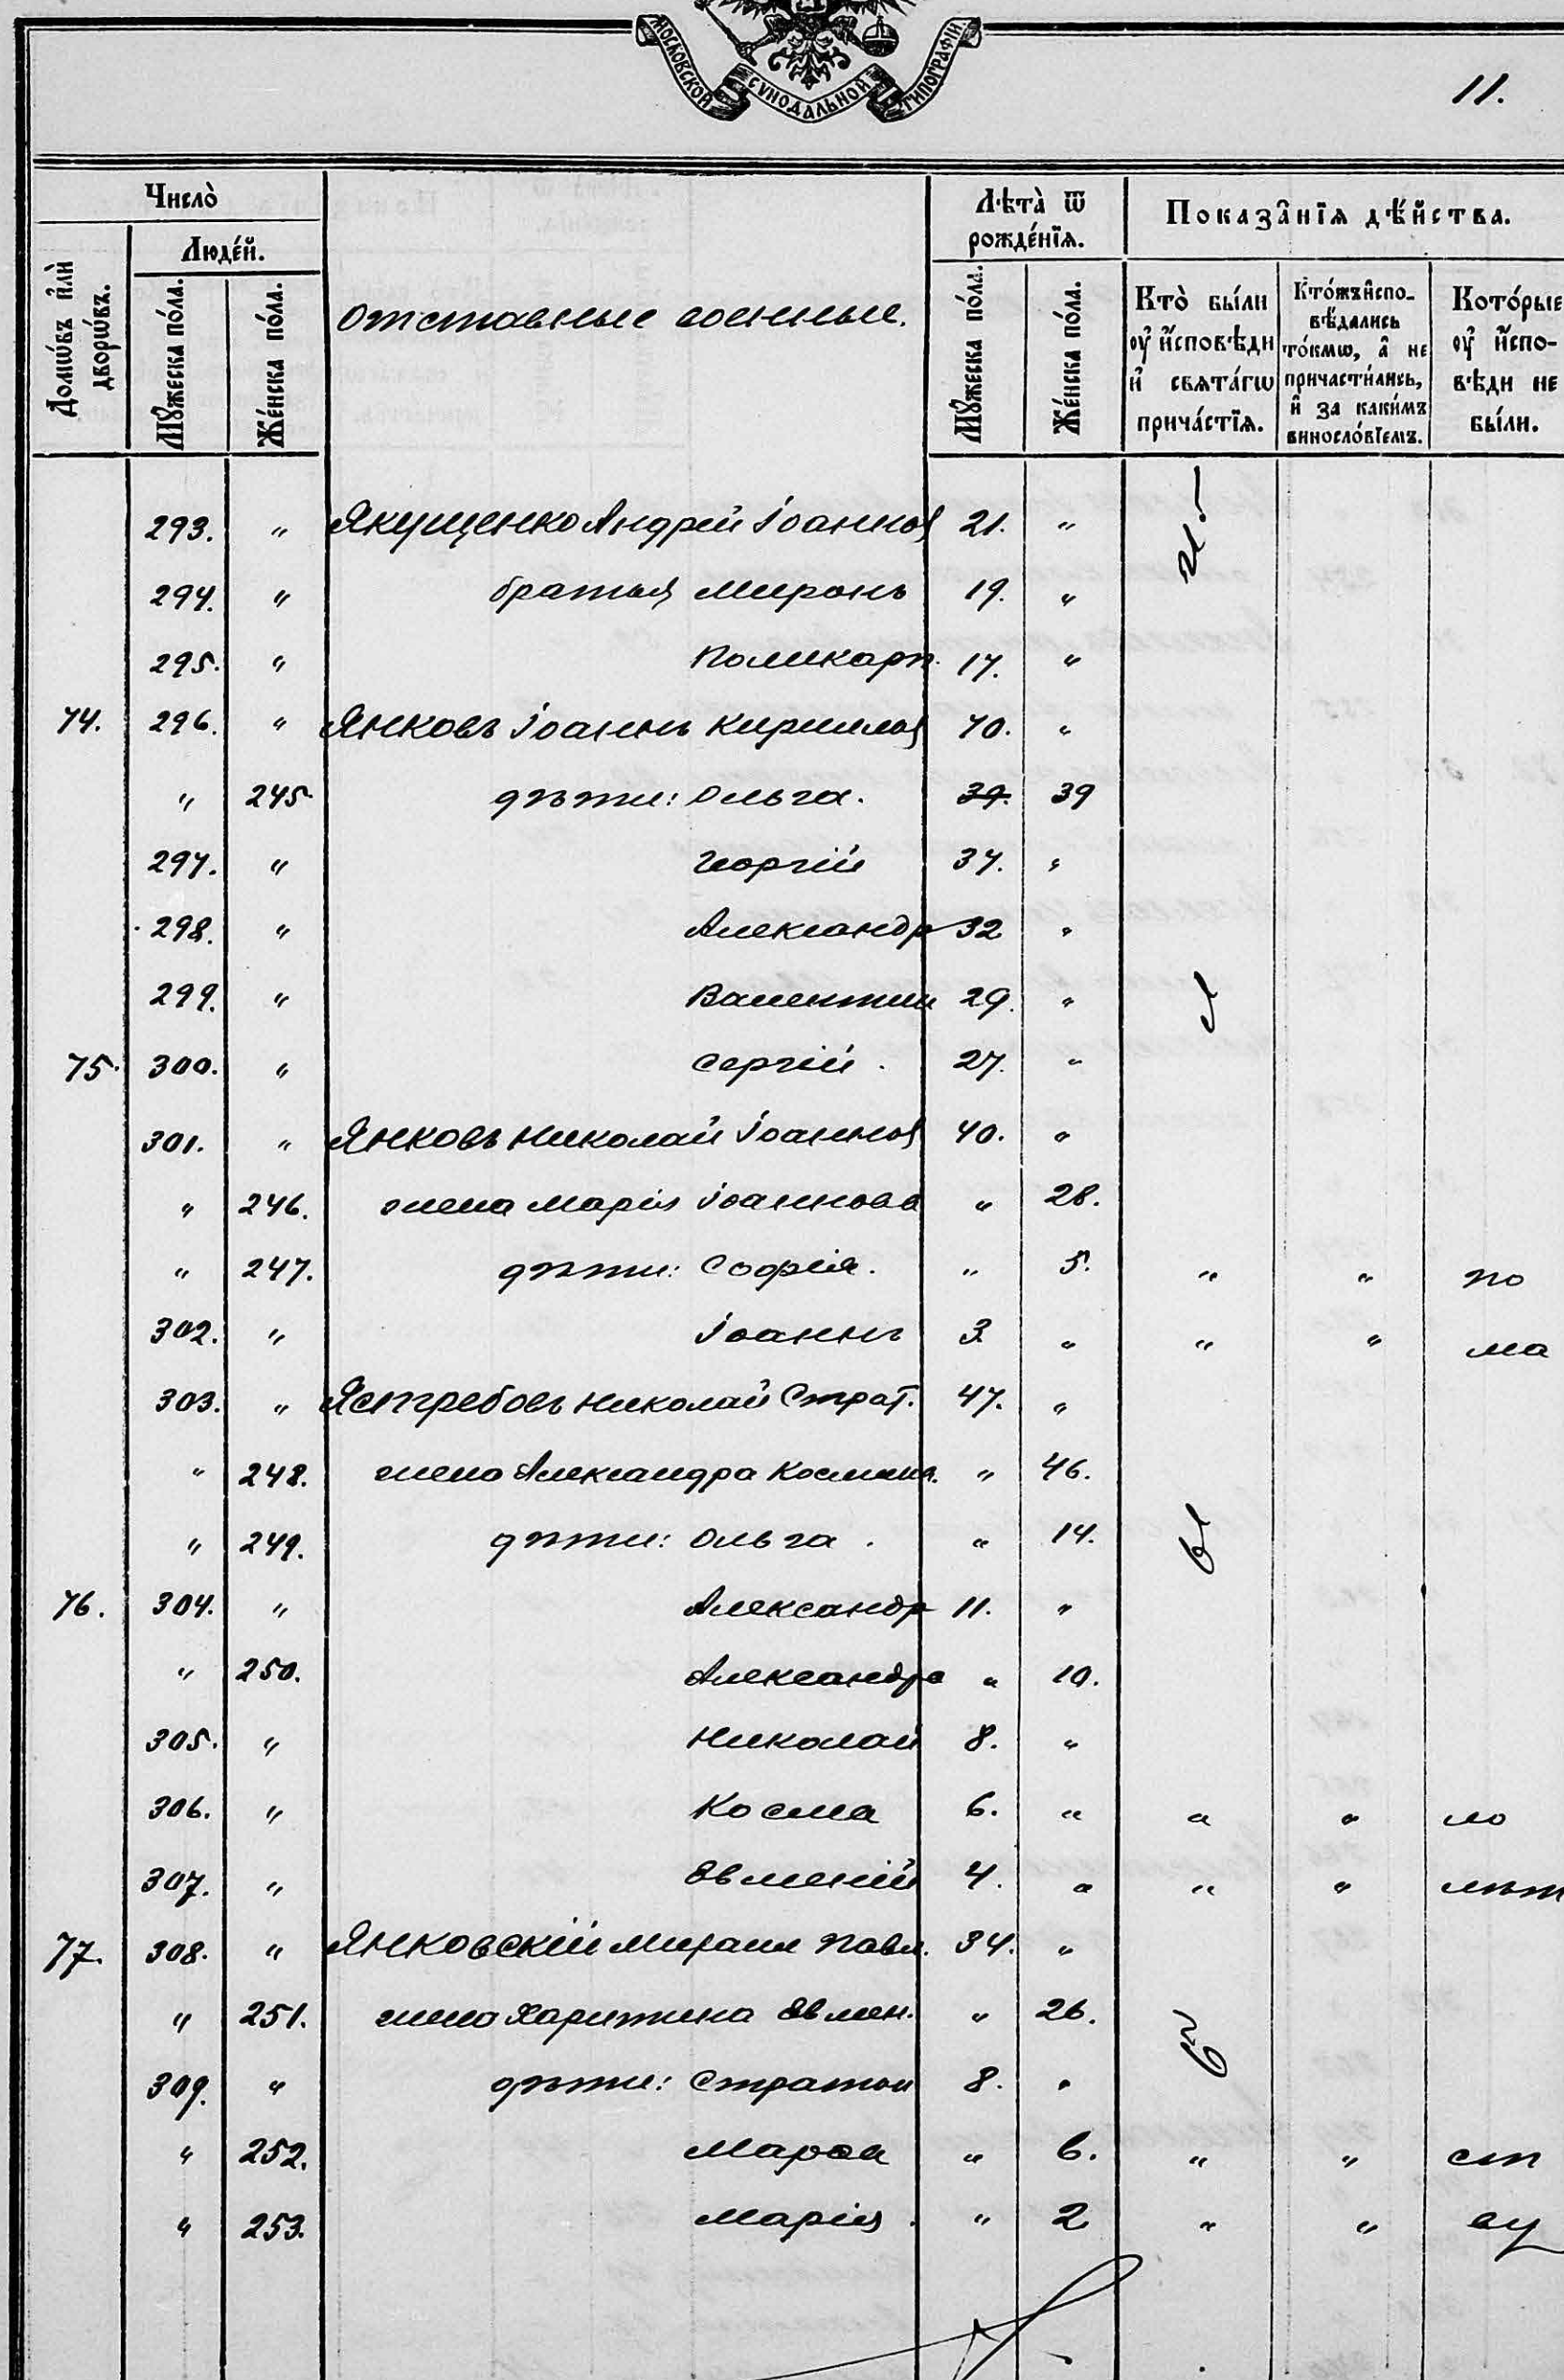 МОСКОВСКОЙ СУНОДАЛЬНОЙ ТИПОГРАФІИ.
11.
Число̀
Людє́й.
Домѡ́въ и҆лѝ дворѡ́въ.
Мꙋ́жеска по́ла.
Же́нска по́ла.
Отставные военные.
Лѣта̀ ѿ рожде́нїѧ.
Мꙋ́жеска по́ла.
Же́нска по́ла.
Показа̑нїѧ дѣ́йства.
Кто̀ бы́ли ᲂу҆ и҆́сповѣди и҆ свѧта́гѡ прича́стїѧ.
Кто́жъ и҆спо-вѣ́дались то́кмѡ, а҆ не причасти́лись, и҆ за каки́мъ винословїемъ.
Кото́рые ᲂу҆ и҆́спо-вѣди не бы́ли.
293. " Якущенко Андрей Іоаннов 21. "
294. " братья Миронъ 19. "
295. " Поликарп. 17. "
74. 296. " Янковъ Іоаннъ Кириллов 70. "
" 245 дѣти: Ольга. 39. 39
297. " Георгій 37. "
298. " Александр 32 "
299. " Валентин 29. "
75. 300. " Сергій. 27. "
301. " Янковъ Николай Іоаннов 40. "
" 246. жена Марія Іоаннова " 28.
" 247. дѣти: Софія. " 5. " " по
302. " Іоаннъ 3. " " " ма
303. " Ястребовъ Николай Страт. 47. "
" 248. жена Александра Космина. " 46.
" 249. дѣти: Ольга. " 14.
76. 304. " Александр 11. "
" 250. Александра " 10.
305. " Николай 8. "
306. " Косма 6. " " " ло
307. " Евменій 4. " " " лѣт
77. 308. " Янковскій Михаил Павл. 34. "
" 251. жена Харитина Евмен. " 26.
309. " дѣти: Стратон 8. "
" 252. Марѳа " 6. " " ст
" 253. Марія. " 2 " " ву